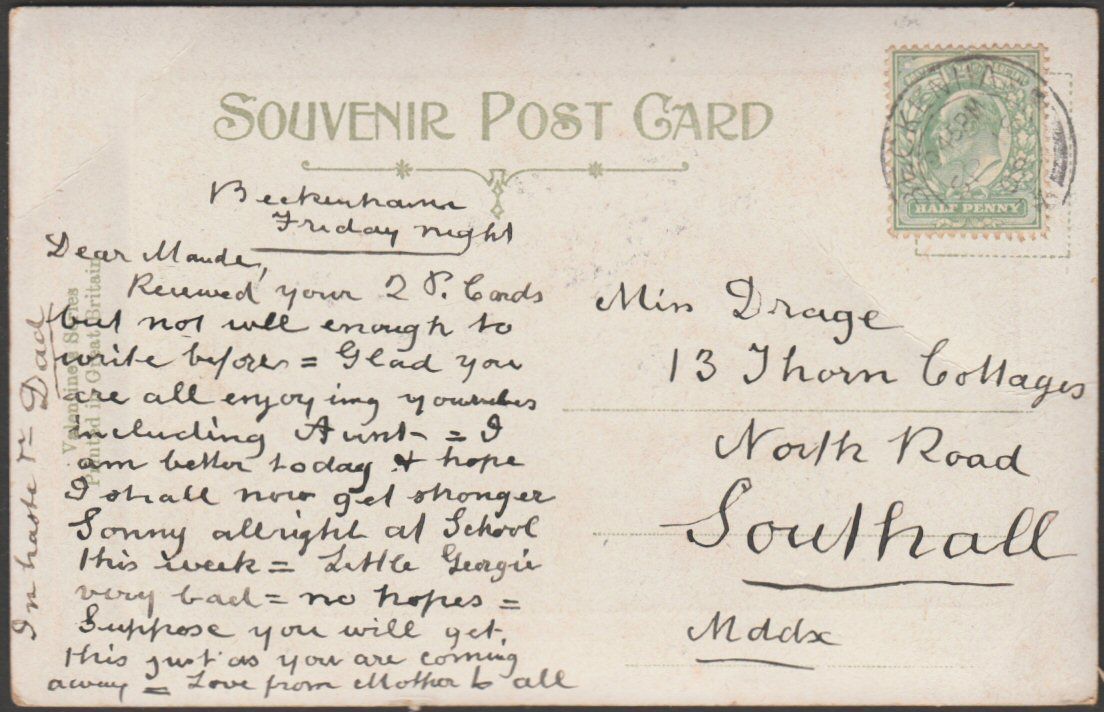 SOUVENIR POST CARD
BECKENHAM
HALF PENNY
Beckenham
Friday night
Dear Maude,
Received your 2 P. Cards
but not well enough to
write before = Glad you
are all enjoying yourselves
including Aunt = I
am better today & hope
I shall now get stronger
Sonny allright at School
this week = Little Georgie
very bad = no hopes =
Suppose you will get
this just as you are coming
away = Love from Mother to all
In haste yr Dad
Valentine's Series
Printed in Great Britain
Miss Drage
13 Thorn Cottages
North Road
Southall
Mddx